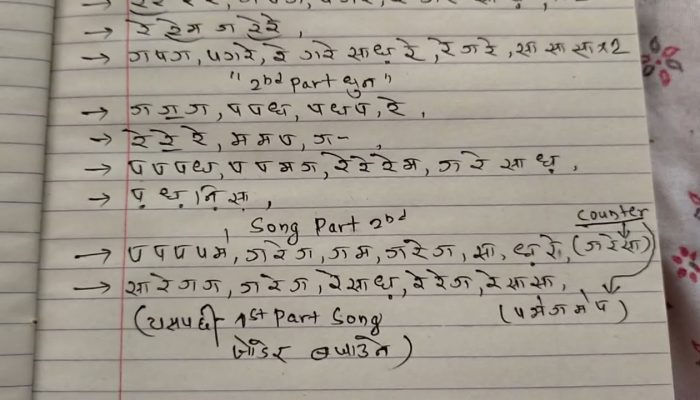 → रे रेम ग रेरे,
→ गपग, पगरे, रे गरे साध़ रे, रेगरे, सा सा सा x2
"2nd Part धुन"
→ ग ग ग, प प ध, प ध प, रे,
→ रे रे रे, म म प, ग-,
→ प प प ध, प प म ग, रे रे रे म, ग रे सा ध़,
→ प़ ध़ नि़ सा,
Song Part 2nd
counter
→ प प प प म, ग रे ग, ग म, ग रे ग, सा, ध़ रे, (ग रे सा)
→ सा रे ग ग, ग रे ग, रे सा ध़, रे रे ग, रे सा सा,
(प म ग म प)
(यसपछी - 1st Part Song
जोडेर बजाउने)